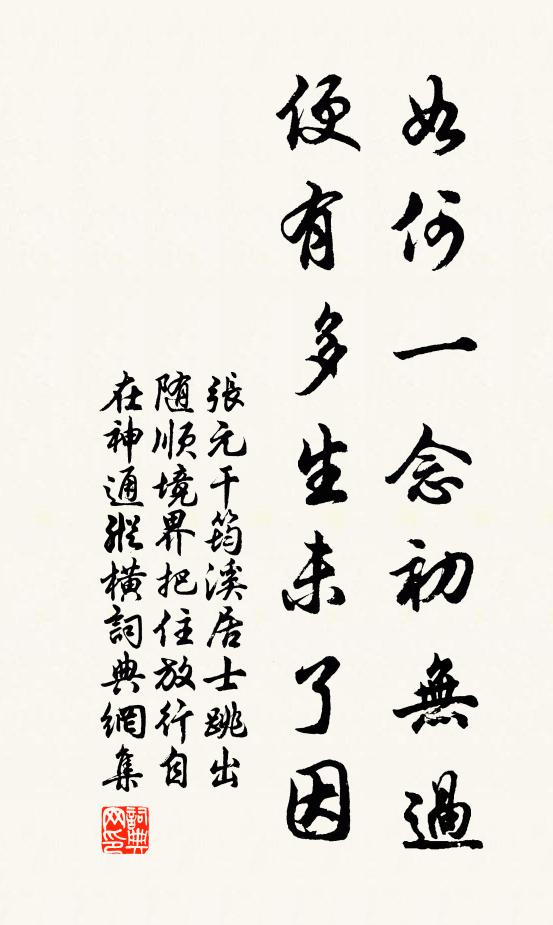 如何一念初無過
便有多生未了因
張元干筠溪居士跳出
随顺境界把住放行自
在神通縱横詞典網集
詞典網印